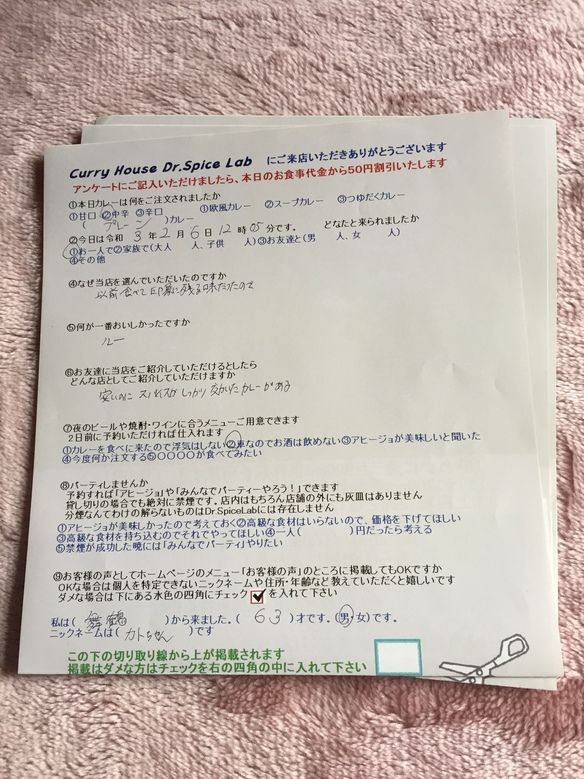 Curry House Dr.Spice Lab にご来店いただきありがとうございます
アンケートにご記入いただけましたら、本日のお食事代金から50円割引いたします
①本日カレーは何をご注文されましたか
①甘口 ②中辛 ③辛口 ①欧風カレー ②スープカレー ③つゆだくカレー
( プレーン )カレー
②今日は令和 3 年 2 月 6 日 12 時 05 分です。 どなたと来られましたか
①お一人で②家族で(大人 人、子供 人)③お友達と(男 人、女 人)
④その他
④なぜ当店を選んでいただいたのですか
以前食べて印象に残る味だったので
⑤何が一番おいしかったですか
ルー
⑥お友達に当店をご紹介していただけるとしたら
どんな店としてご紹介していただけますか
安いのに スパイスが しっかり 効いたカレーがある
⑦夜のビールや焼酎・ワインに合うメニューご用意できます
2日前に予約いただければ仕入れます
①カレーを食べに来たので浮気はしない②車なのでお酒は飲めない③アヒージョが美味しいと聞いた
④今度何か注文する⑤〇〇〇〇が食べてみたい
⑧パーティしませんか
予約すれば「アヒージョ」や「みんなでパーティーやろう!」できます
貸し切りの場合でも絶対に禁煙です。店内はもちろん店舗の外にも灰皿はありません
分煙なんてわけの解らないものはDr.SpiceLabには存在しません
①アヒージョが美味しかったので考えておく②高級な食材はいらないので、価格を下げてほしい
③高級な食材を持ち込むのでそれでやってほしい④一人( )円だったら考える
⑤禁煙が成功した暁には「みんなでパーティ」やりたい
⑨お客様の声としてホームページのメニュー「お客様の声」のところに掲載してもOKですか
OKな場合は個人を特定できないニックネームや住所・年齢など教えていただくと嬉しいです
ダメな場合は下にある水色の四角にチェック を入れて下さい
私は( 舞鶴 )から来ました。( 63 )才です。(男・女)です。
ニックネームは( カトちゃん )です
この下の切り取り線から上が掲載されます
掲載はダメな方はチェックを右の四角の中に入れて下さい